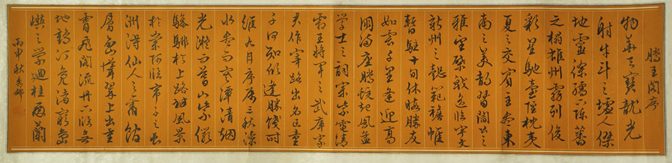 滕王閣序
物華天寶龍光
射牛斗之墟人傑
地靈徐孺下陳蕃
之榻雄州霧列俊
彩星馳臺隍枕夷
夏之交賓主盡東
南之美都督閻公之
雅望棨戟遙臨宇文
新州之懿範襜帷
暫駐十旬休暇勝友
如雲千里逢迎高
朋滿座騰蛟起鳳孟
學士之詞宗紫電清
霜王將軍之武庫家
君作宰路出名區童
子何知躬逢勝餞時
維九月序屬三秋潦
水盡而寒潭清煙
光凝而暮山紫儼
驂騑於上路訪風景
於崇阿臨帝子之長
洲得仙人之舊館
層巒聳翠上出重
霄飛閣流丹下臨無
地鶴汀鳧渚窮島
嶼之縈迴桂殿蘭
丙申秋